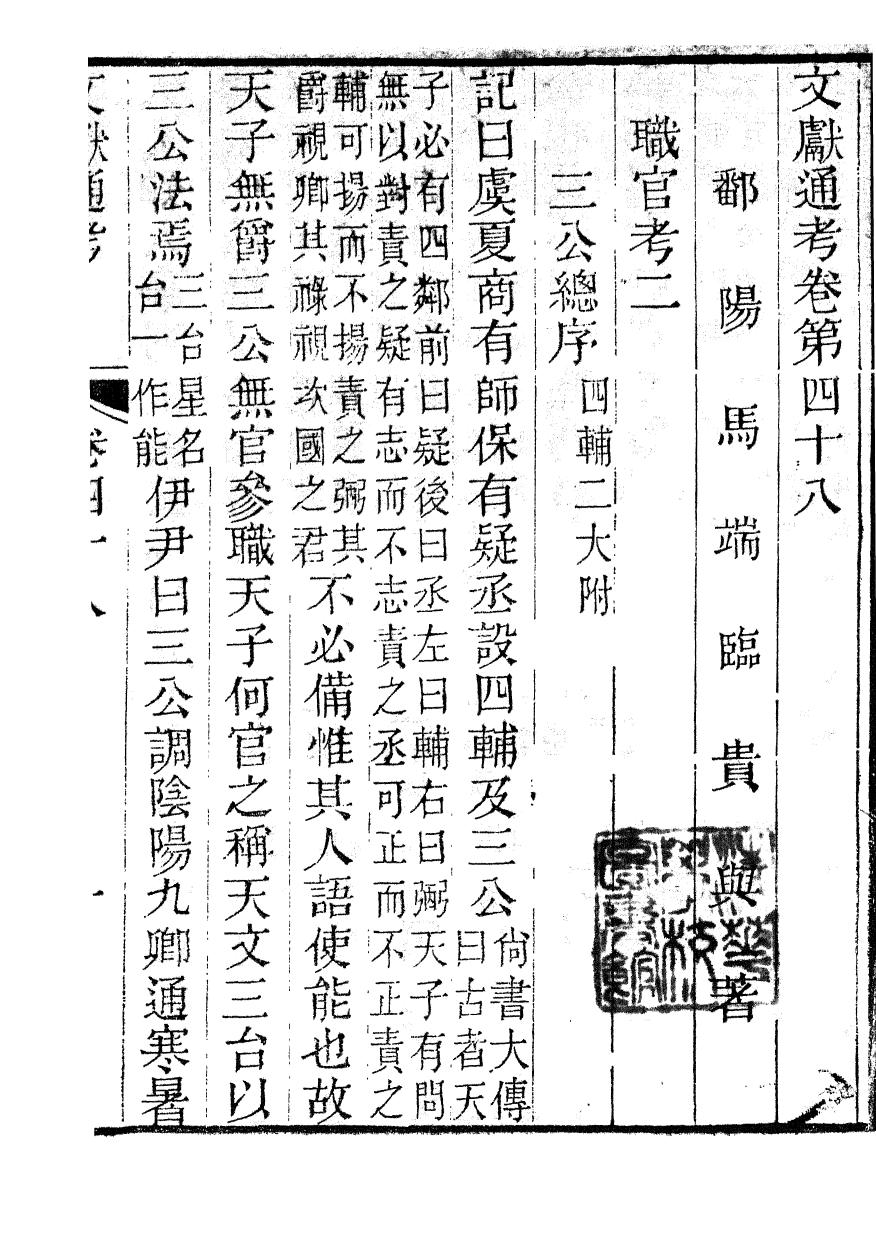 文獻通考卷第四十八
鄱陽馬端臨貴與著
職官考二
三公總序四輔二大附
記曰虞夏商有師保有疑丞設四輔及三公尚書大傳
曰古者天
子必有四鄰前曰疑後曰丞左曰輔右曰弼天子有問
無以對責之疑有志而不志責之丞可正而不正責之
輔可揚而不揚責之弼其
爵視卿其祿視次國之君不必備惟其人語使能也故
天子無爵三公無官參職天子何官之稱天文三台以
三公法焉三台星名
台一作能伊尹曰三公調陰陽九卿通寒暑
文獻通考 卷四十八 一